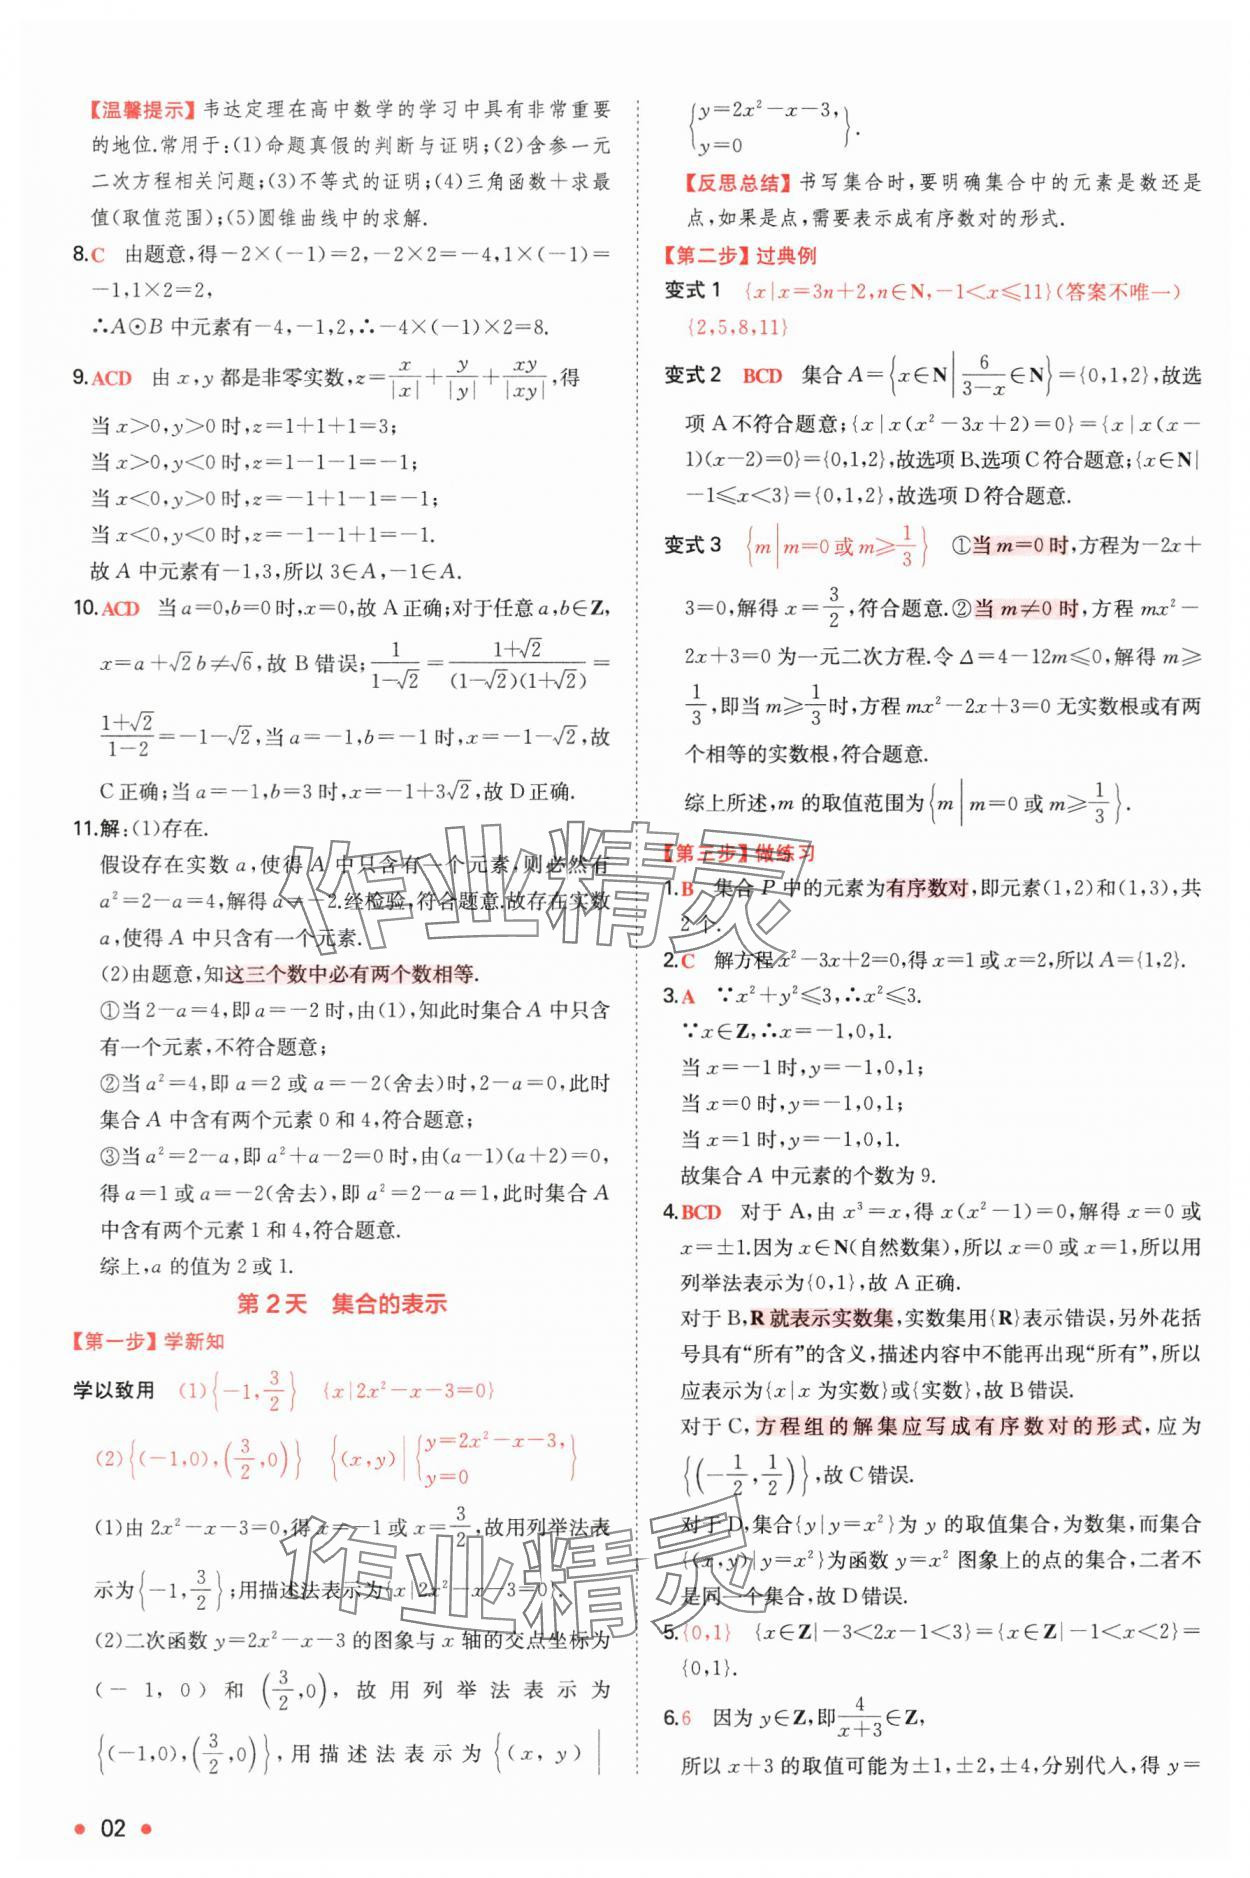 【温馨提示】韦达定理在高中数学的学习中具有非常重要
的地位.常用于:(1)命题真假的判断与证明;(2)含参一元
二次方程相关问题;(3)不等式的证明;(4)三角函数+求最
值(取值范围);(5)圆锥曲线中的求解.
8.C 由题意,得-2×(-1)=2,-2×2=-4,1×(-1)=
-1,1×2=2,
∴A⊙B 中元素有-4,-1,2,∴-4×(-1)×2=8.
9.ACD 由 x,y 都是非零实数,z=x/|x|+y/|y|+xy/|xy|,得
当 x>0,y>0 时,z=1+1+1=3;
当 x>0,y<0 时,z=1-1-1=-1;
当 x<0,y>0 时,z=-1+1-1=-1;
当 x<0,y<0 时,z=-1-1+1=-1.
故 A 中元素有-1,3,所以 3∈A,-1∈A.
10.ACD 当 a=0,b=0 时,x=0,故 A 正确;对于任意 a,b∈Z,
x=a+√2b≠√6,故 B 错误;1/(1-√2)=(1+√2)/((1-√2)(1+√2))=
(1+√2)/(1-2)=-1-√2,当 a=-1,b=-1 时,x=-1-√2,故
C 正确;当 a=-1,b=3 时,x=-1+3√2,故 D 正确.
11.解:(1)存在.
假设存在实数 a,使得 A 中只含有一个元素,则必然有
a²=2-a=4,解得 a=-2.经检验,符合题意.故存在实数
a,使得 A 中只含有一个元素.
(2)由题意,知这三个数中必有两个数相等.
①当 2-a=4,即 a=-2 时,由(1),知此时集合 A 中只含
有一个元素,不符合题意;
②当 a²=4,即 a=2 或 a=-2(舍去)时,2-a=0,此时
集合 A 中含有两个元素 0 和 4,符合题意;
③当 a²=2-a,即 a²+a-2=0 时,由(a-1)(a+2)=0,
得 a=1 或 a=-2(舍去),即 a²=2-a=1,此时集合 A
中含有两个元素 1 和 4,符合题意.
综上,a 的值为 2 或 1.
第 2 天 集合的表示
【第一步】学新知
学以致用 (1){-1,3/2} {x|2x²-x-3=0}
(2){(-1,0),(3/2,0)} {(x,y)|{y=2x²-x-3,y=0}
(1)由 2x²-x-3=0,得 x=-1 或 x=3/2,故用列举法表
示为{-1,3/2};用描述法表示为{x|2x²-x-3=0}.
(2)二次函数 y=2x²-x-3 的图象与 x 轴的交点坐标为
(-1,0)和(3/2,0),故用列举法表示为
{(-1,0),(3/2,0)},用描述法表示为{(x,y)|
{y=2x²-x-3,y=0}.
【反思总结】书写集合时,要明确集合中的元素是数还是
点,如果是点,需要表示成有序数对的形式.
【第二步】过典例
变式 1 {x|x=3n+2,n∈N,-1<x≤11}(答案不唯一)
{2,5,8,11}
变式 2 BCD 集合 A={x∈N|6/(3-x)∈N}={0,1,2},故选
项 A 不符合题意;{x|x(x²-3x+2)=0}={x|x(x-
1)(x-2)=0}={0,1,2},故选项 B、选项 C 符合题意;{x∈N|
-1≤x<3}={0,1,2},故选项 D 符合题意.
变式 3 {m|m=0 或 m≥1/3} ①当 m=0 时,方程为-2x+
3=0,解得 x=3/2,符合题意.②当 m≠0 时,方程 mx²-
2x+3=0 为一元二次方程.令 Δ=4-12m≤0,解得 m≥
1/3,即当 m≥1/3时,方程 mx²-2x+3=0 无实数根或有两
个相等的实数根,符合题意.
综上所述,m 的取值范围为{m|m=0 或 m≥1/3}.
【第三步】做练习
1.B 集合 P 中的元素为有序数对,即元素(1,2)和(1,3),共
2 个.
2.C 解方程 x²-3x+2=0,得 x=1 或 x=2,所以 A={1,2}.
3.A ∵x²+y²≤3,∴x²≤3.
∵x∈Z,∴x=-1,0,1.
当 x=-1 时,y=-1,0,1;
当 x=0 时,y=-1,0,1;
当 x=1 时,y=-1,0,1.
故集合 A 中元素的个数为 9.
4.BCD 对于 A,由 x³=x,得 x(x²-1)=0,解得 x=0 或
x=±1.因为 x∈N(自然数集),所以 x=0 或 x=1,所以用
列举法表示为{0,1},故 A 正确.
对于 B,R 就表示实数集,实数集用{R}表示错误,另外花括
号具有“所有”的含义,描述内容中不能再出现“所有”,所以
应表示为{x|x 为实数}或{实数},故 B 错误.
对于 C,方程组的解集应写成有序数对的形式,应为
{(-1/2,1/2)},故 C 错误.
对于 D,集合{y|y=x²}为 y 的取值集合,为数集,而集合
{(x,y)|y=x²}为函数 y=x² 图象上的点的集合,二者不
是同一个集合,故 D 错误.
5.{0,1} {x∈Z|-3<2x-1<3}={x∈Z|-1<x<2}=
{0,1}.
6.6 因为 y∈Z,即4/(x+3)∈Z,
所以 x+3 的取值可能为±1,±2,±4,分别代入,得 y=
02
作业精灵
作业精灵